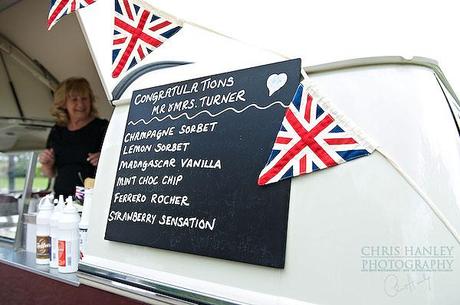 CONGRATULATIONS
MR & MRS. TURNER
CHAMPAGNE SORBET
LEMON SORBET
MADAGASCAR VANILLA
MINT CHOC CHIP
FERRERO ROCHER
STRAWBERRY SENSATION
CHRIS HANLEY
PHOTOGRAPHY